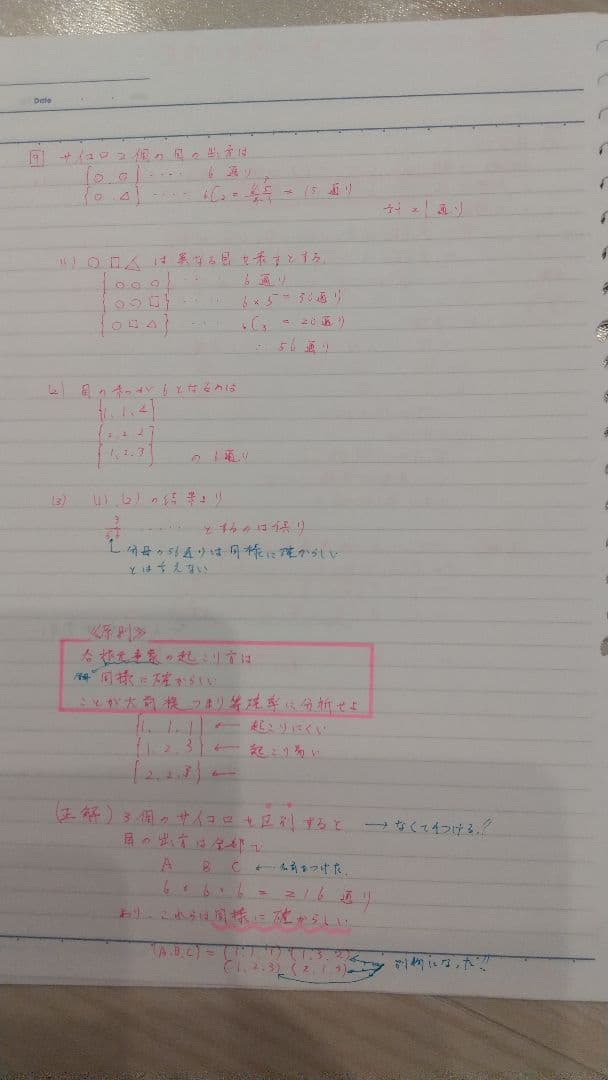 Date
例 サイコロ2個の目の出方は
{○ ○} ‥‥ 6通り
{○ △} ‥‥ 6C2 = 6・5/2・1 = 15通り
計21通り
(1) ○□△は異なる目を表すとする
{○○○} ‥ 6通り
{○○□} ‥ 6×5=30通り
{○□△} ‥ 6C3 = 20通り
∴ 56通り
(2) 目の和が6となるのは
{1, 1, 4}
{2, 2, 2}
{1, 2, 3} の3通り
(3) (1), (2)の結果より
3/56 ‥‥‥ とするのは誤り
分母の56通りは同様に確からしい
とは言えない
≪原則≫
各根元事象の起こり方は
同様に確からしい
ことが大前提 つまり等確率に分析せよ
{1, 1, 1} ← 起こりにくい
{1, 2, 3} ← 起こり易い
{2, 2, 3} ←
(正解) 3個のサイコロを区別すると → なくてもつける!!
目の出方は全部で
A B C ← 名前をつけた
6・6・6 = 216通り
あり、これらは同様に確からしい
(A,B,C) = (1,1,1) (1,3,2)
(1,2,3) (2,1,3) 別物になった!!